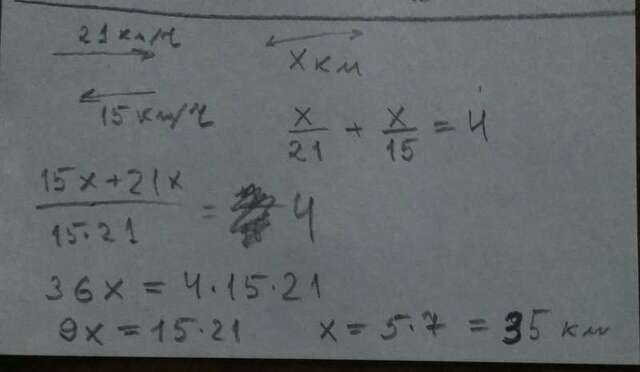 21 км/ч
x км
15 км/ч
x/21 + x/15 = 4
(15x+21x)/(15·21) = 4
36x = 4·15·21
9x = 15·21 x = 5·7 = 35 км